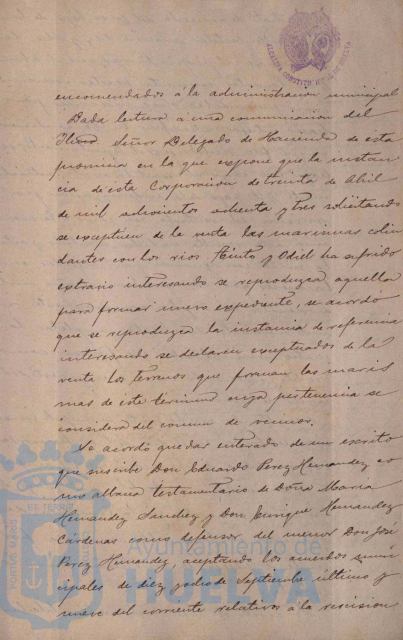 ALCALDIA CONSTITUCIONAL DE HUELVA
encomendados á la administración municipal
Dada lectura a una comunicacion del
Iltmo Señor Delegado de Hacienda de esta
provincia en la que expone que la instan
cia de esta Corporacion de treinta de Abril
de mil ochocientos ochenta y tres solicitando
se exceptuen de la venta las marismas colin
dantes con los rios Tinto y Odiel ha sufrido
extravio interesando se reproduzca aquella
para formar nuevo expediente, se acordó
que se reproduzca la instancia de referencia
interesando se declaren exceptuados de la
venta los terrenos que forman las maris
mas de este termino cuya pertenencia se
considera del comun de vecinos.
Se acordó quedar enterado de un escrito
que suscribe Don Eduardo Perez Hernandez co
mo albacea testamentario de Doña Maria
Hernandez Sanchez y Don Enrique Hernandez
Cárdenas como defensor del menor Don José
Perez Hernandez, aceptando los acuerdos muni
cipales de diez y ocho de Septiembre último y
nueve del corriente relativos á la rescision
Ayuntamiento de
HUELVA